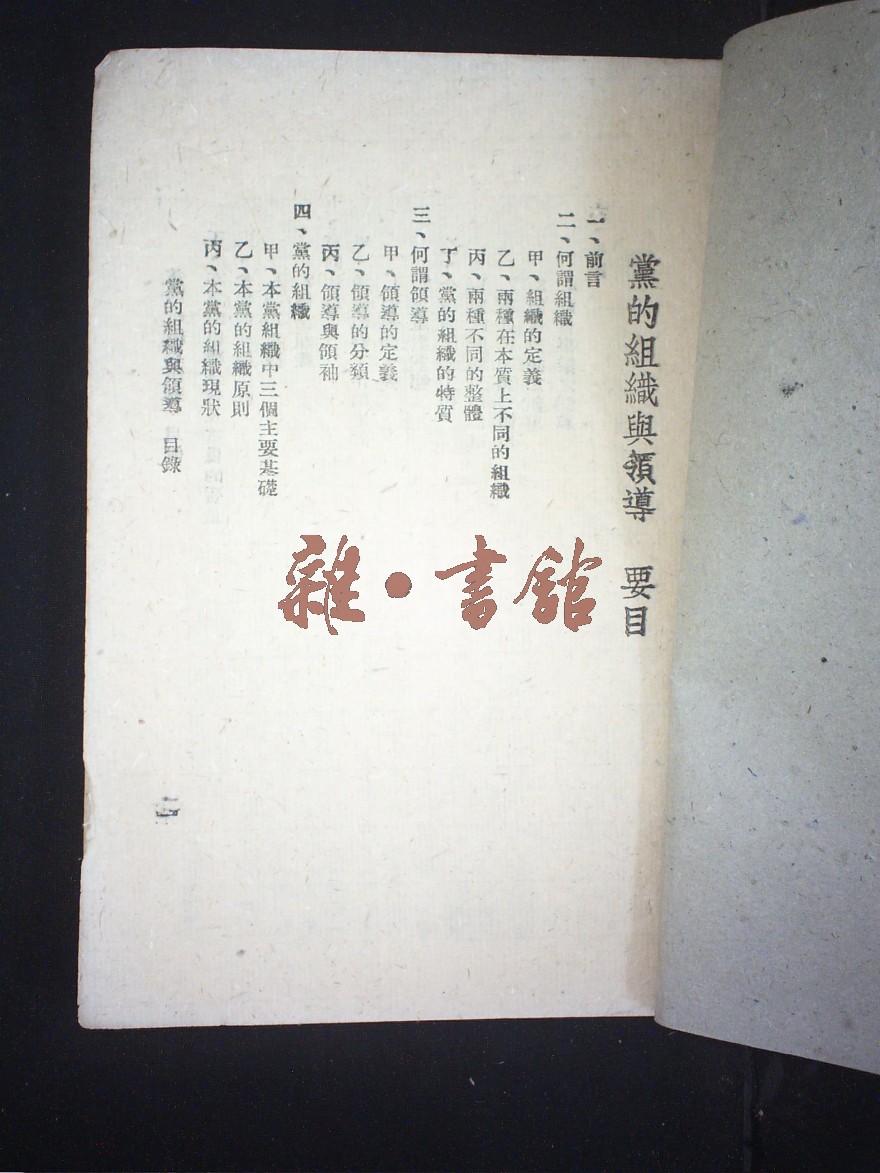 黨的組織與領導　要目
一、前言
二、何謂組織
甲、組織的定義
乙、兩種在本質上不同的組織
丙、兩種不同的整體
丁、黨的組織的特質
三、何謂領導
甲、領導的定義
乙、領導的分類
丙、領導與領袖
四、黨的組織
甲、本黨組織中三個主要基礎
乙、本黨的組織原則
丙、本黨的組織現狀
黨的組織與領導　目錄
雜·書館